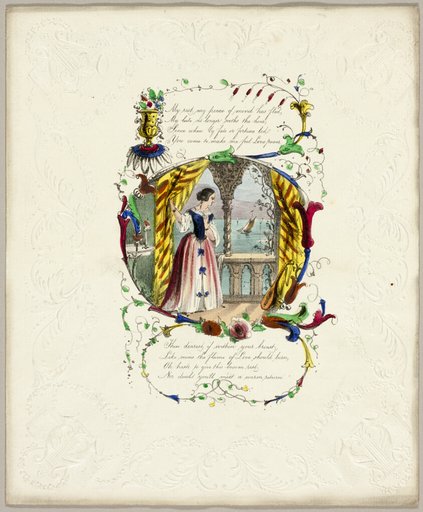 My rest, my peace of mind has fled,
My lute no longer soothe the hour,
Since when by fate or fortune led,
You came to make me feel Love's power
Then dearest if within your breast,
Like mine the flame of Love should burn,
Oh haste to give this bosom rest,
Nor doubt you'll meet a warm return